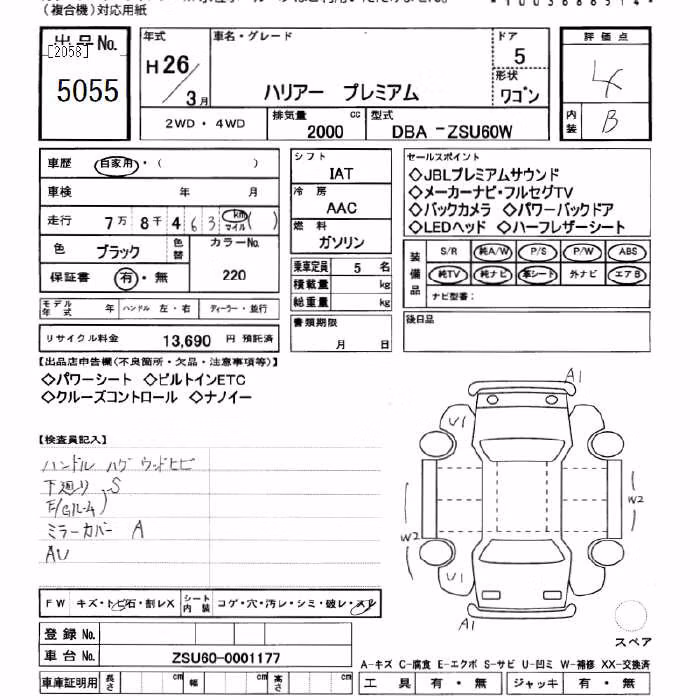 （複合機）対応用紙
出品No.
[2058]
5055
年式
H26
/
3月
車名・グレード
ハリアー プレミアム
ドア
5
形状
ワゴン
評価点
4
内装
B
2WD・4WD
排気量
2000
cc
型式
DBA -ZSU60W
車歴
自家用・( )
車検 年 月
走行 7万 8千 4 6 3 km マイル ( )
色 ブラック
色替
カラーNo.
220
保証書 有・無
モデル年式 年 ハンドル 左・右 ディーラー・並行
リサイクル料金 13,690 円 預託済
シフト
IAT
冷房
AAC
燃料
ガソリン
乗車定員 5 名
積載量 kg
総重量 kg
書類期限
月 日
セールスポイント
◇JBLプレミアムサウンド
◇メーカーナビ・フルセグTV
◇バックカメラ ◇パワーバックドア
◇LEDヘッド ◇ハーフレザーシート
装備品
S/R 純A/W P/S P/W ABS
純TV 純ナビ 革シート 外ナビ エアB
ナビ型番：
後日品
【出品店申告欄（不良箇所・欠品・注意事項等）】
◇パワーシート ◇ビルトインETC
◇クルーズコントロール ◇ナノイー
【検査員記入】
ハンドル ハゲ ウッドヒビ
下廻り S
F/Gリル-A
ミラーカバー A
AU
A1
U1
W2
W2
U1
A1
スペア
FW キズ・トビ石・割レX
シート内装 コゲ・穴・汚レ・シミ・破レ・スレ
登録No.
車台No. ZSU60-0001177
車庫証明用 長さ cm 幅 cm 高さ cm
A-キズ C-腐食 E-エクボ S-サビ U-凹ミ W-補修 XX-交換済
工具 有・無 ジャッキ 有・無